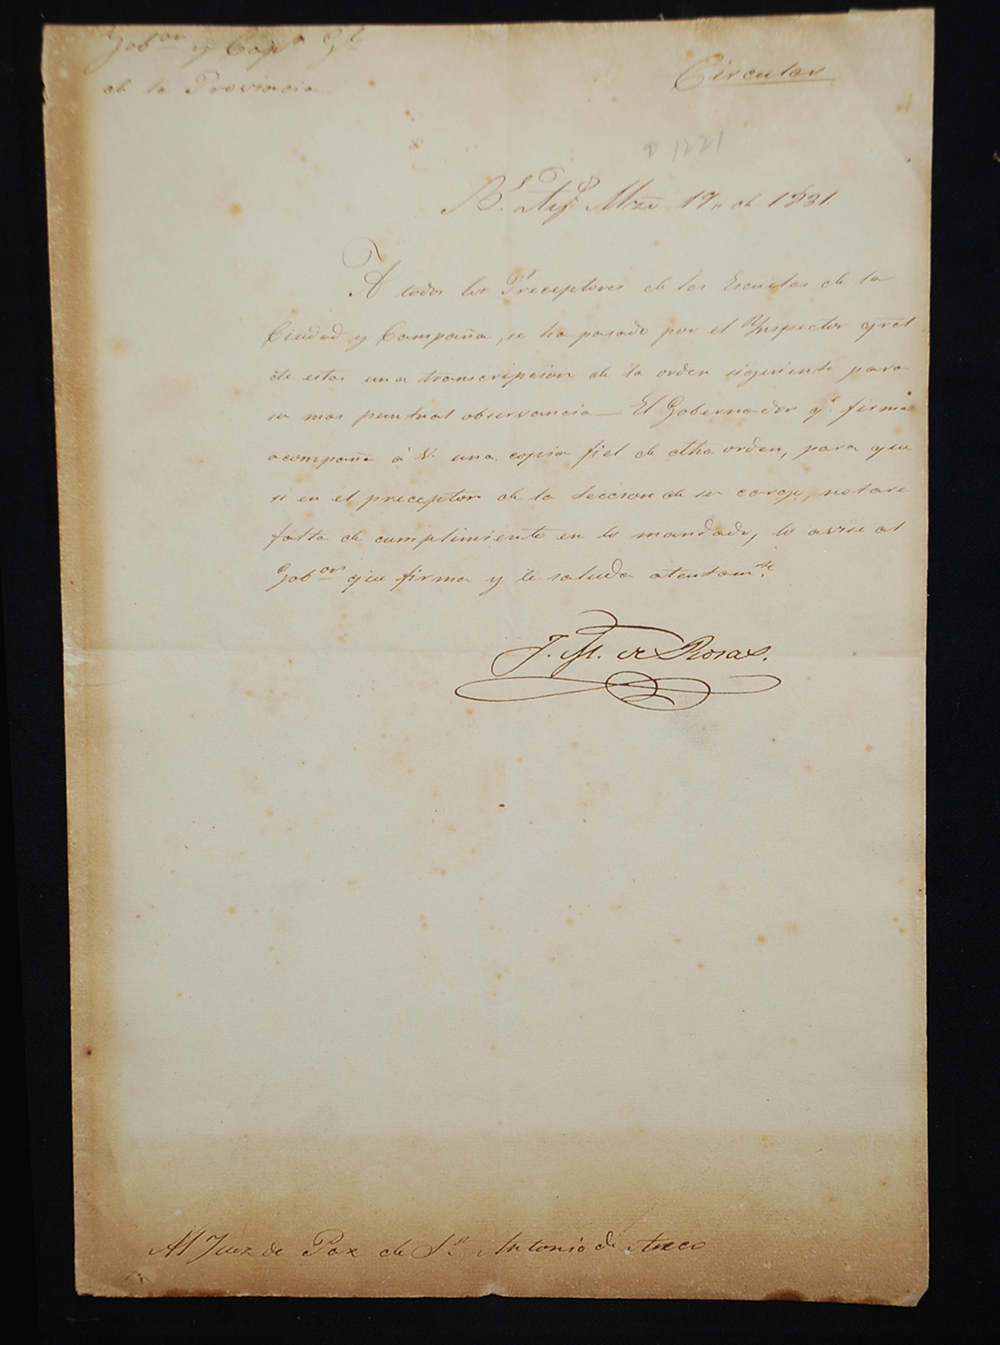 Gob.or y Cap.n Gl
de la Provincia
Circular
1221
B.s Ay.s Mzo 19,, de 1831.
A todos los Preceptores de las Escuelas de la
Ciudad y Campaña, se ha pasado por el Ynspector gral
de estas una transcripcion de la orden siguiente para
su mas puntual observancia — El Gobernador q.e firma
acompaña á V. una copia fiel de dha orden, para que
si en el preceptor de la Seccion de su cargo, notare
falta de cumplimiento en lo mandado, lo avise al
Gob.or que firma y le saluda atentam.te
J. M. de Rosas.
Al Juez de Paz de S.n Antonio de Areco